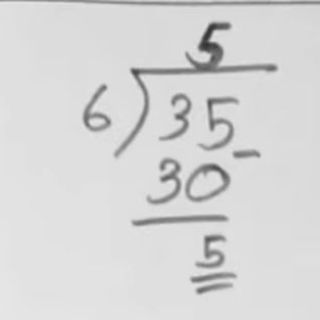 5
6)35
30
5